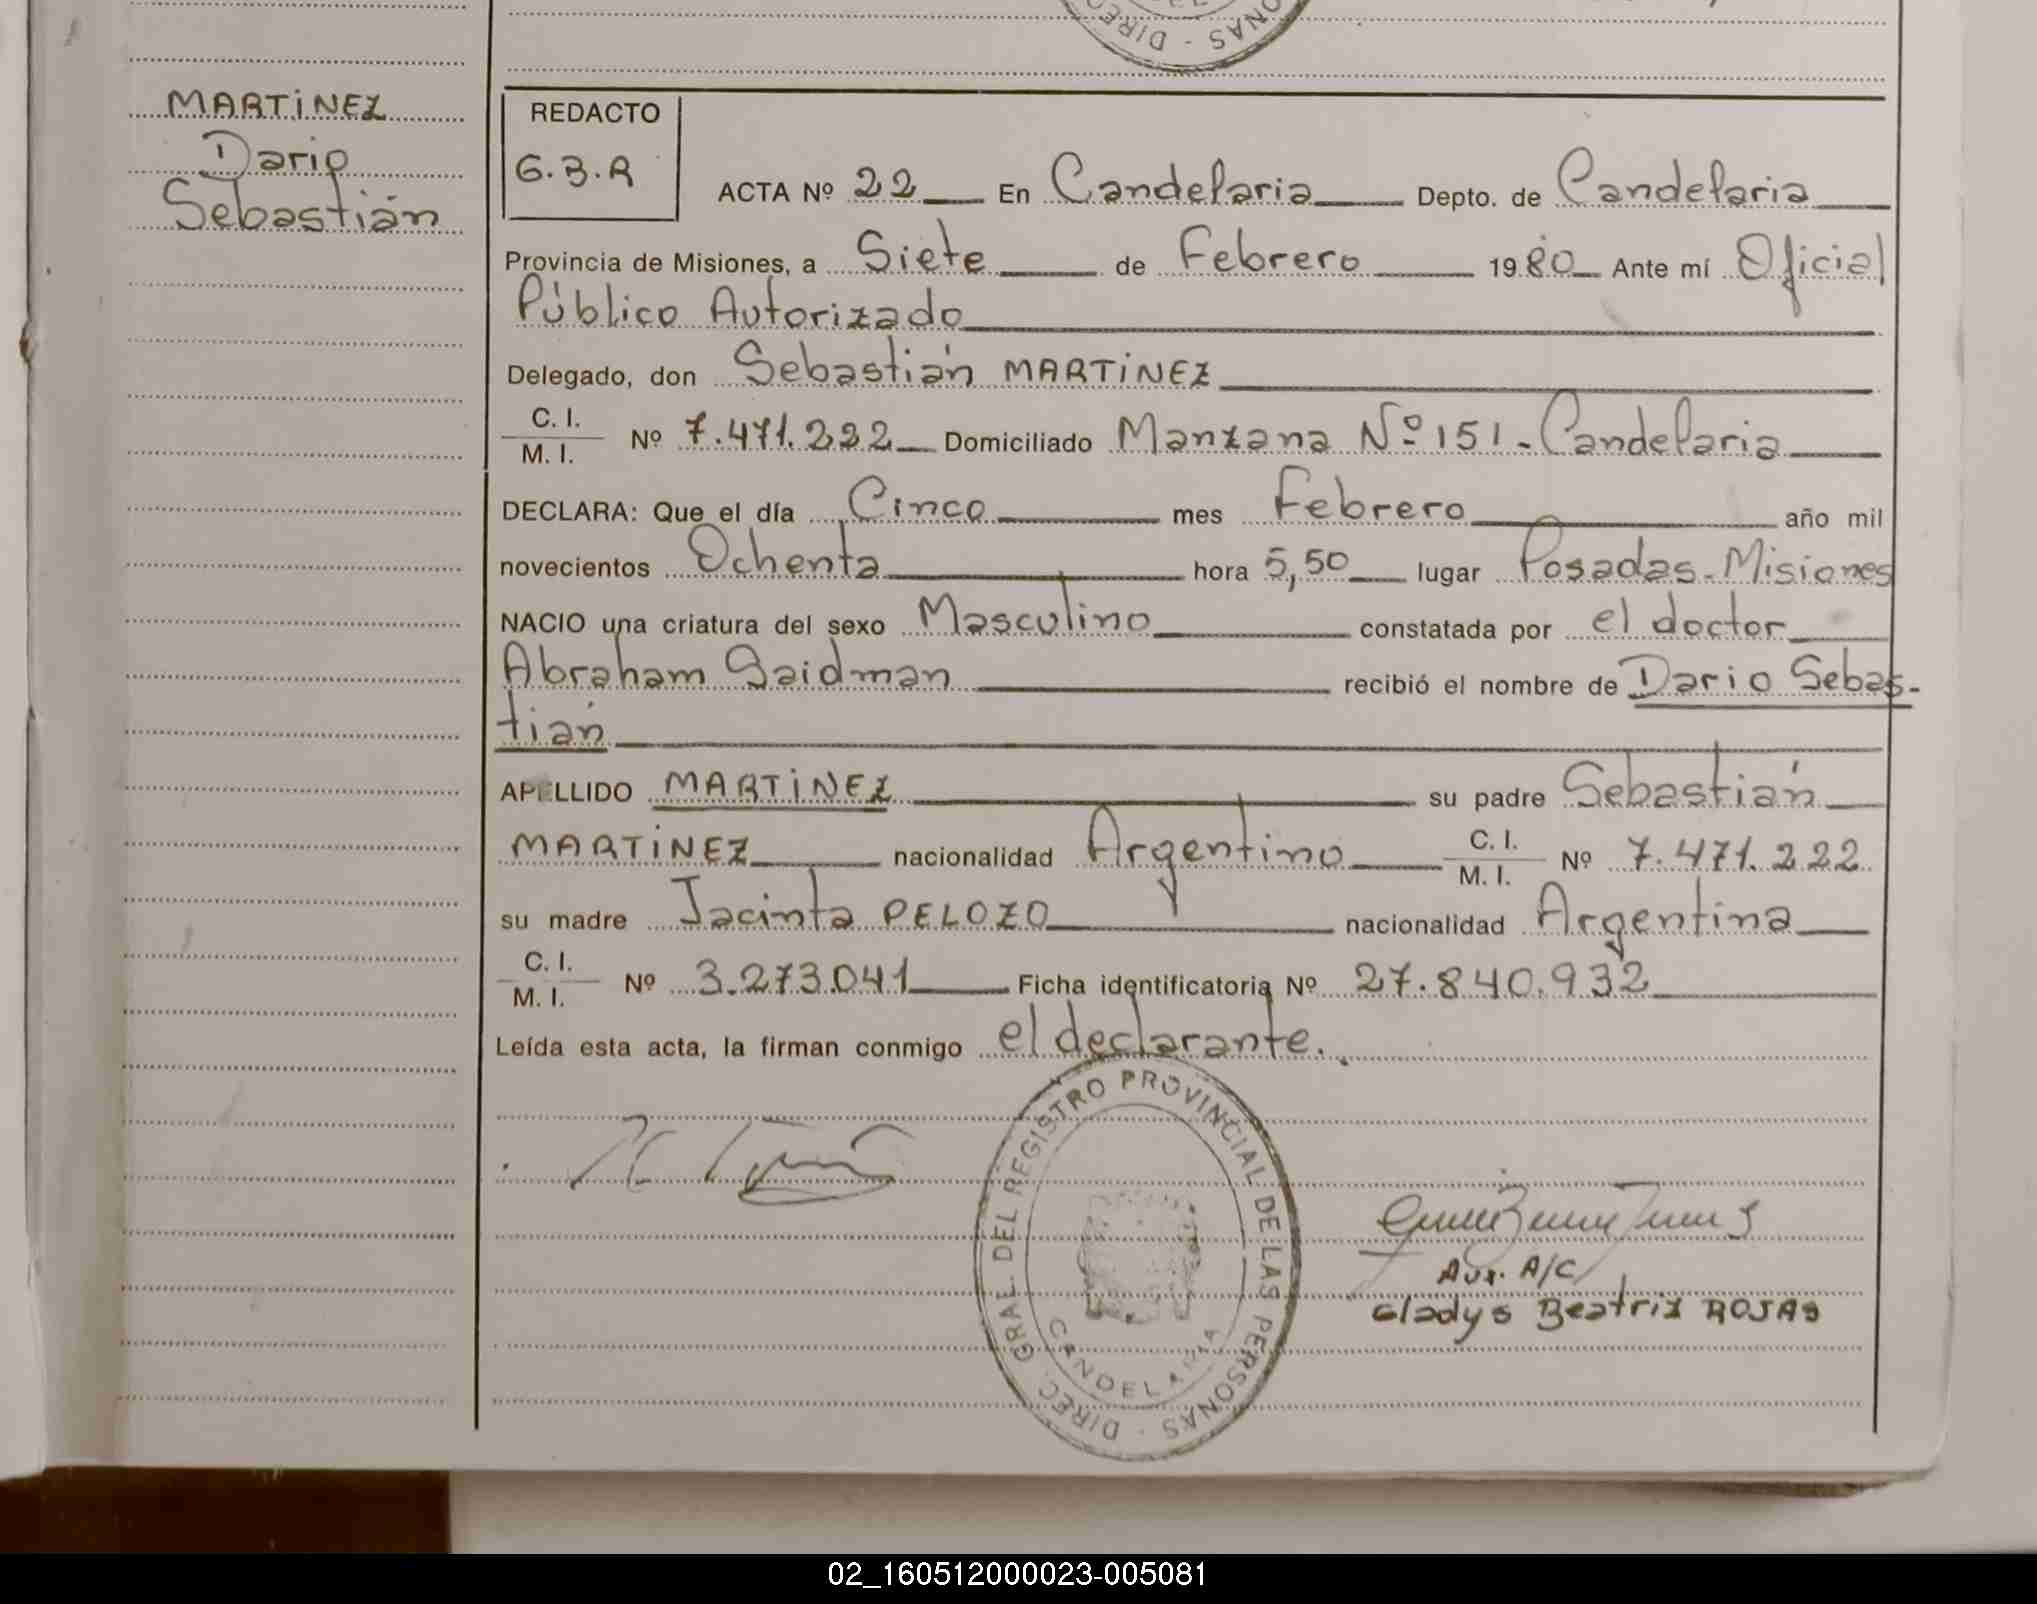 MARTINEZ
Dario
Sebastián
REDACTO
G.B.R
ACTA Nº 22 En Candelaria Depto. de Candelaria
Provincia de Misiones, a Siete de Febrero 1980 Ante mí Oficial
Público Autorizado
Delegado, don Sebastián MARTINEZ
C. I.
M. I. Nº 7.471.222 Domiciliado Manzana Nº 151 - Candelaria
DECLARA: Que el día Cinco mes Febrero año mil
novecientos Ochenta hora 5,50 lugar Posadas - Misiones
NACIO una criatura del sexo Masculino constatada por el doctor
Abraham Saidman recibió el nombre de Dario Sebas-
tián
APELLIDO MARTINEZ su padre Sebastián
MARTINEZ nacionalidad Argentino C. I. M. I. Nº 7.471.222
su madre Jacinta PELOZO nacionalidad Argentina
C. I.
M. I. Nº 3.273.041 Ficha identificatoria Nº 27.840.932
Leída esta acta, la firman conmigo el declarante.
DIREC. GRAL DEL REGISTRO PROVINCIAL DE LAS PERSONAS
CANDELARIA
Aux. A/C
Gladys Beatriz ROJAS
02_160512000023-005081